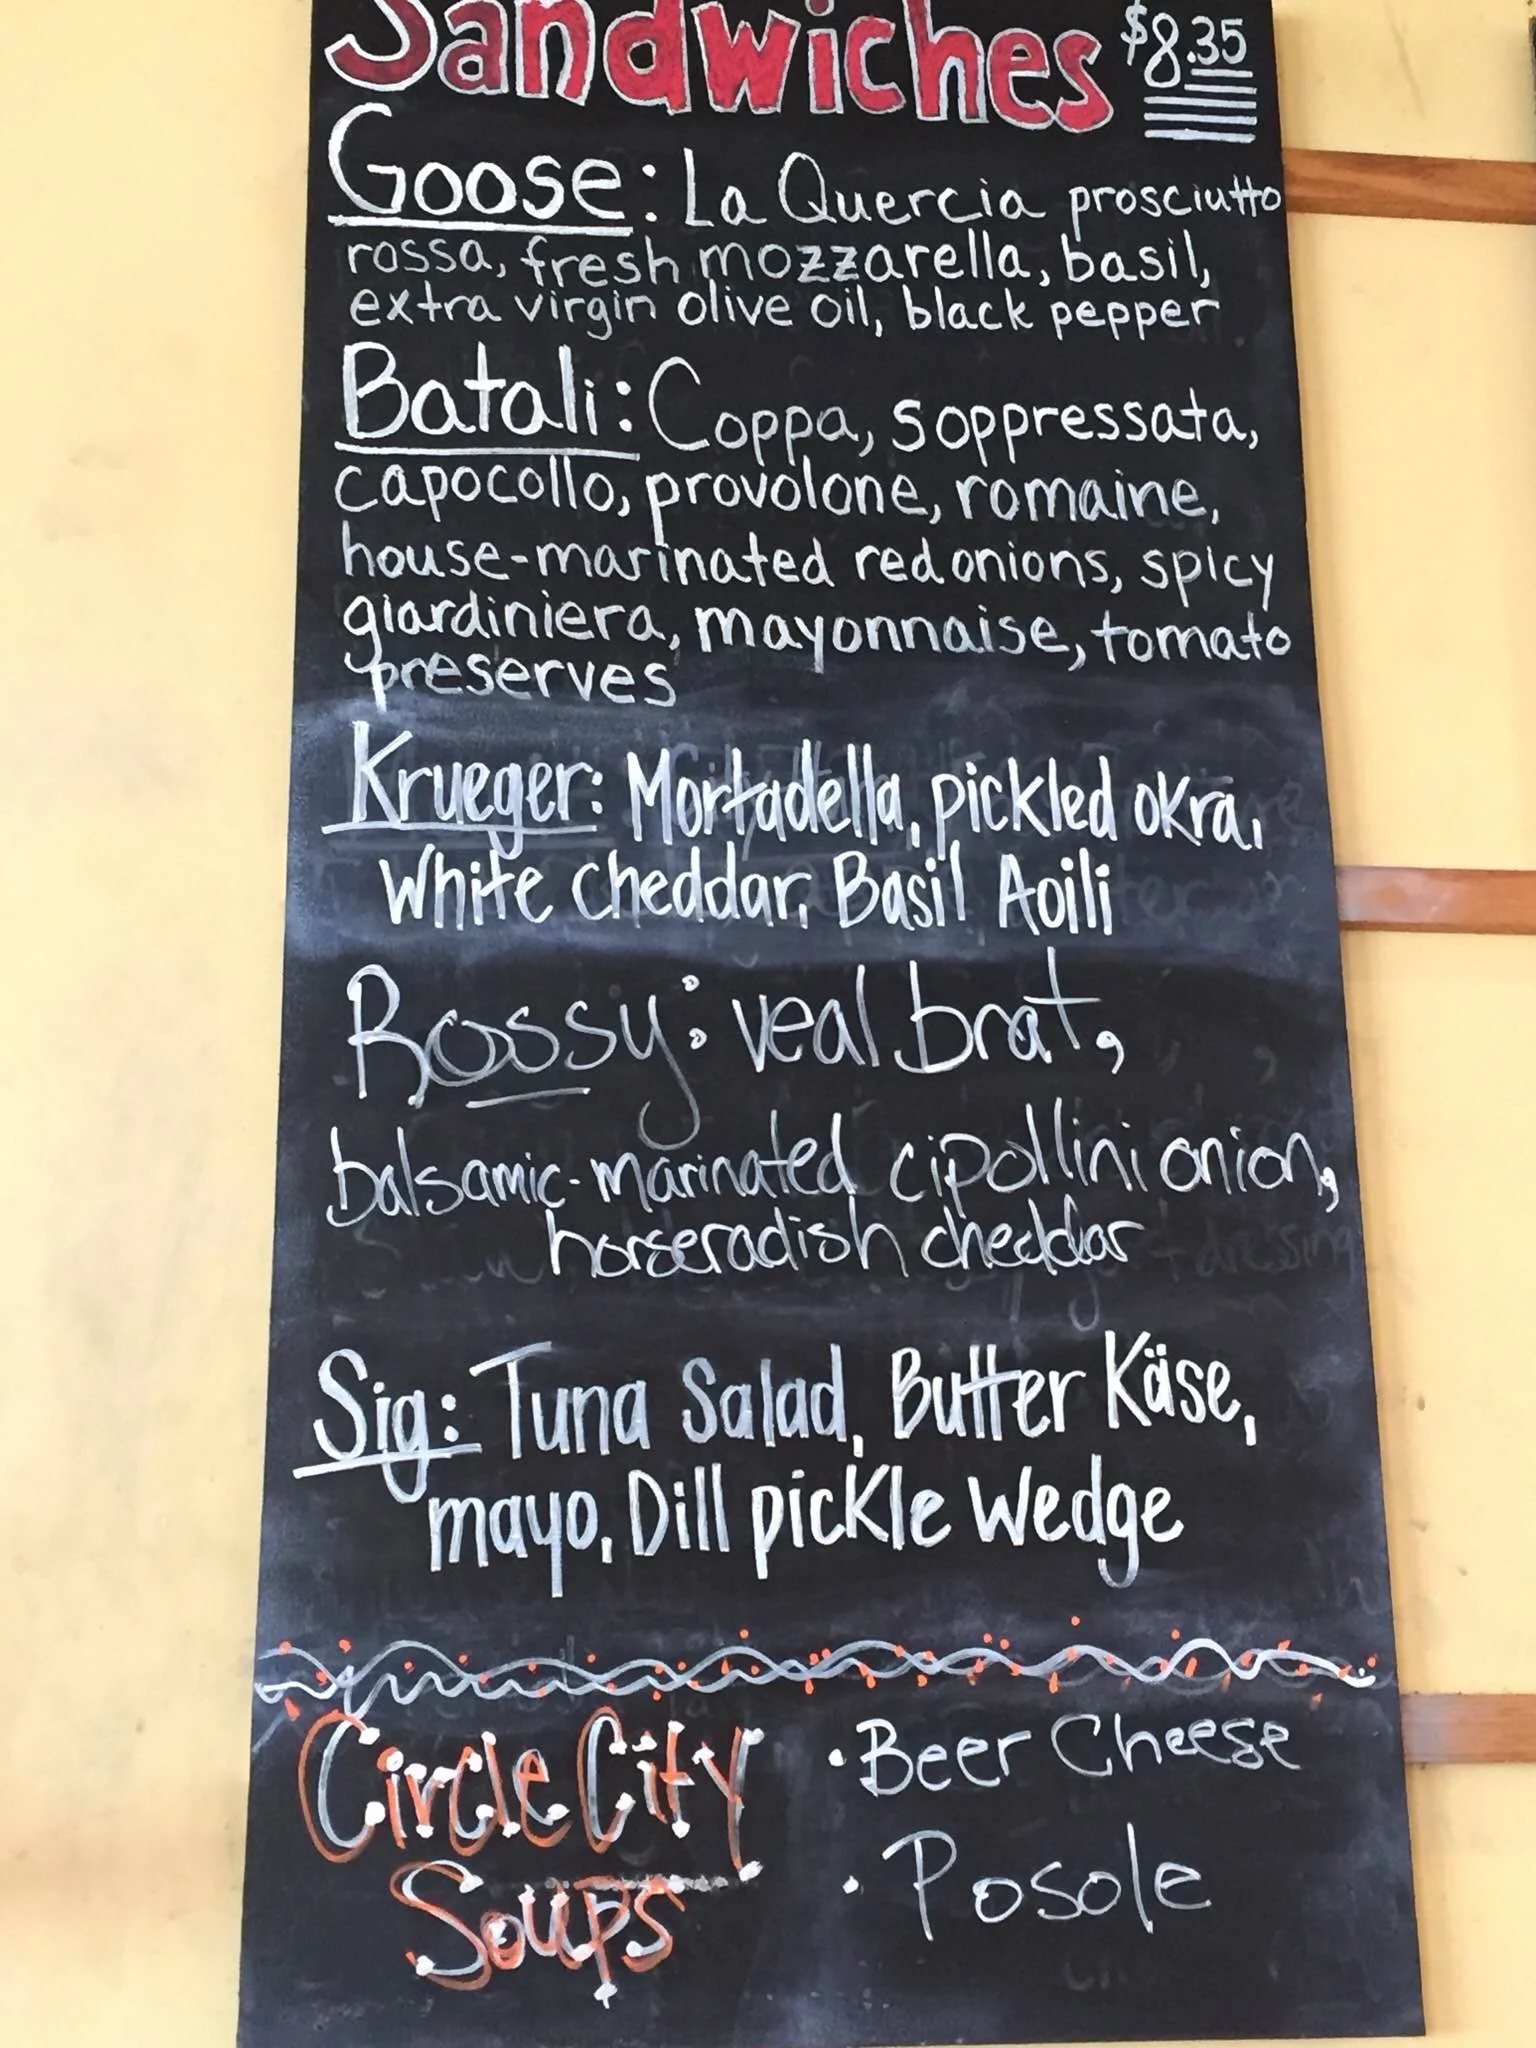 Sandwiches $8.35
Goose: La Quercia prosciutto
rossa, fresh mozzarella, basil,
extra virgin olive oil, black pepper
Batali: Coppa, soppressata,
capocollo, provolone, romaine,
house-marinated red onions, spicy
giardiniera, mayonnaise, tomato
preserves
Krueger: Mortadella, pickled okra,
White cheddar, Basil Aoili
Rossy: veal brat,
balsamic-marinated cipollini onion,
horseradish cheddar
Sig: Tuna Salad, Butter Käse,
mayo, Dill pickle Wedge
Circle City
Soups
• Beer Cheese
• Posole